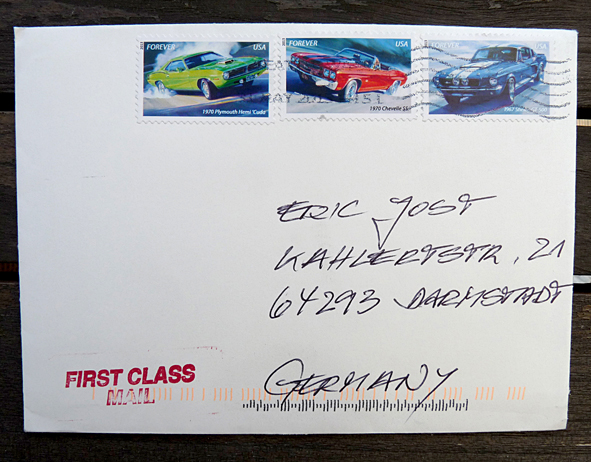 FOREVER USA
1970 Plymouth Hemi 'Cuda
FOREVER USA
1970 Chevelle SS
FOREVER USA
1967
ERIC JOST
KAHLERTSTR. 21
64293 DARMSTADT
GERMANY
FIRST CLASS
MAIL